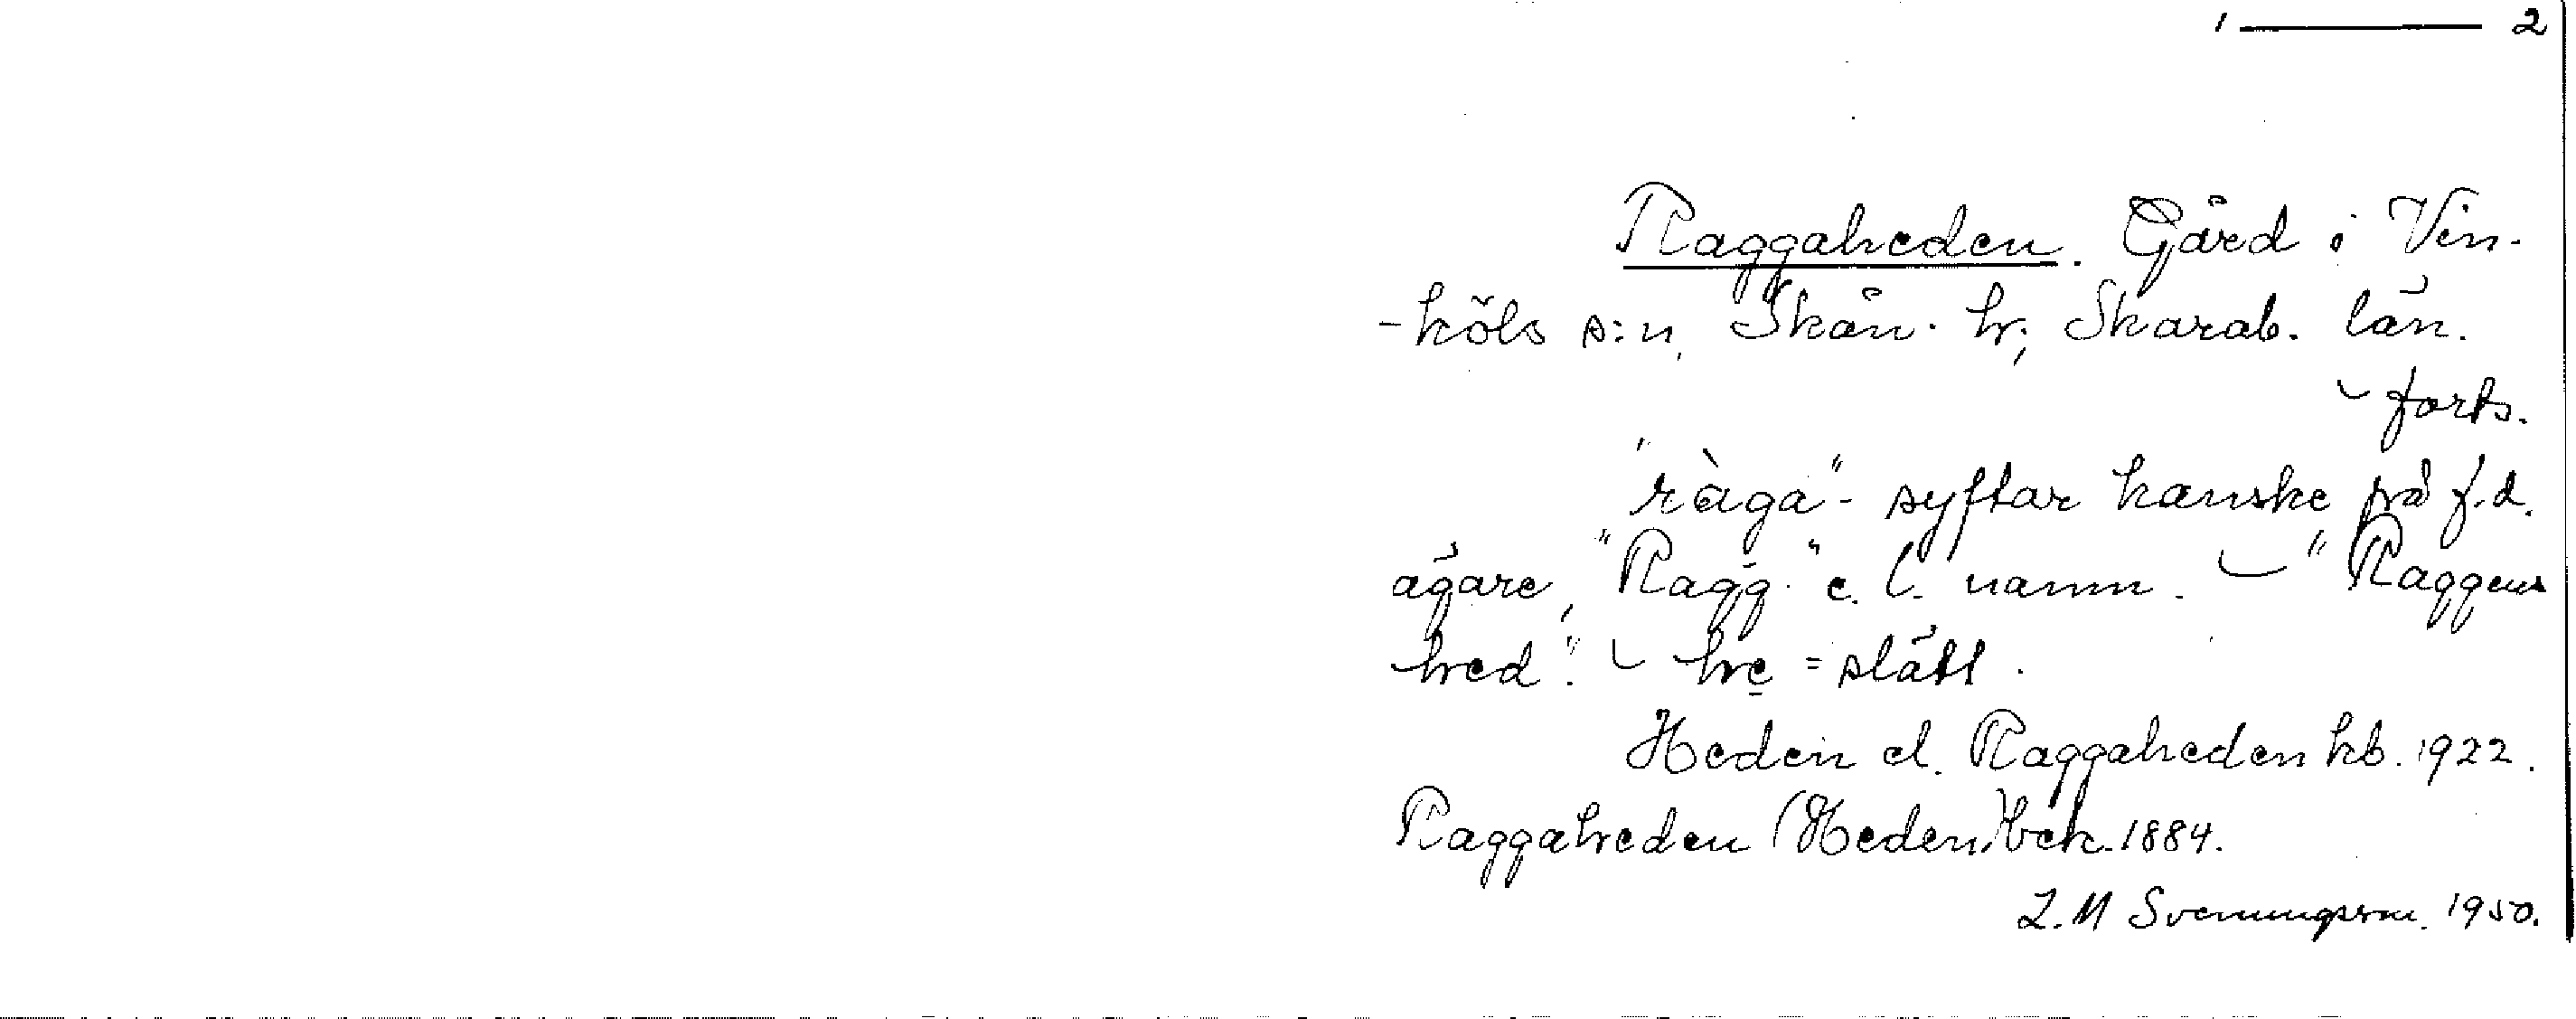 1 ——— 2
Raggaheden. Gård i Vin-
-köls s:n, Skån. h; Skarab. län.
– forts.
"ràga"- syftar kanske på f.d.
ägare, "Ragg" e. l. namn. – "Raggens
hed". – he = slätt.
Heden el. Raggaheden kb. 1922.
Raggaheden (Heden) bek. 1884.
L. M Svenungsson. 1950.